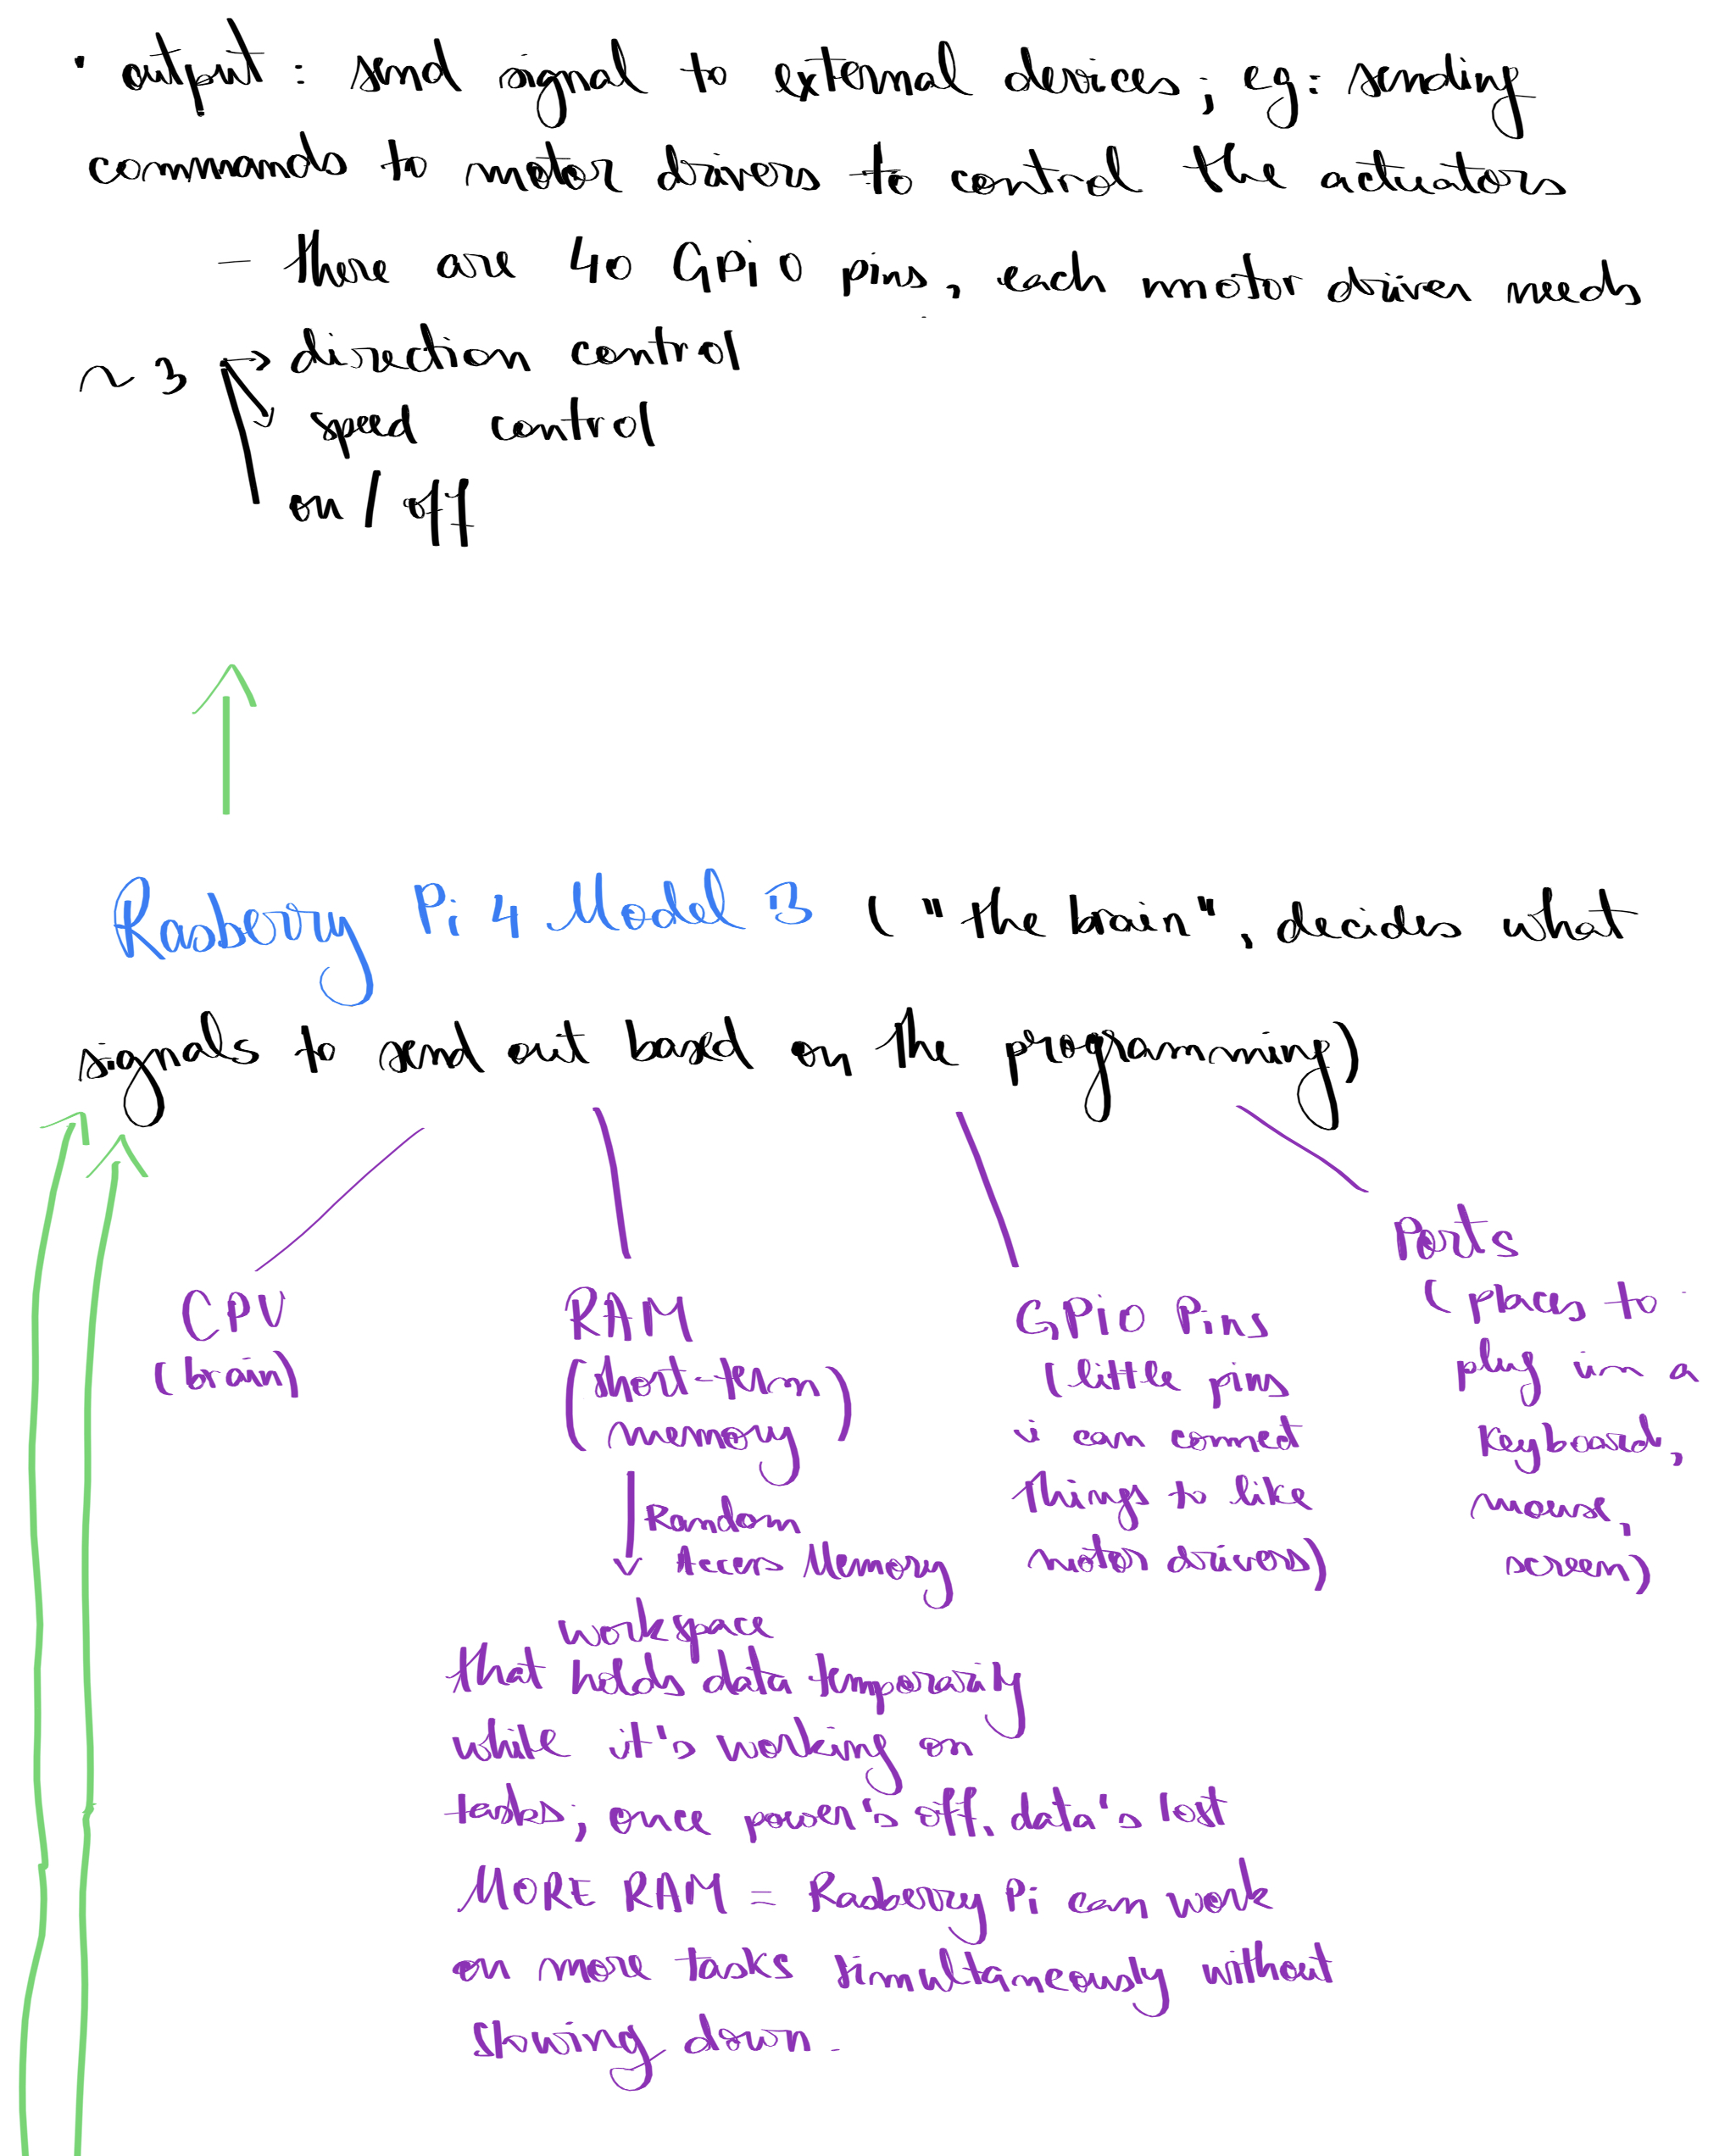 • output : send signal to external devices ; eg: sending
commands to motor drivers to control the actuators
- there are 40 GPiO pins, each motor driver needs
~ 3 → direction control
speed control
on / off
Rasberry Pi 4 Model B ( "the brain", decides what
signals to send out based on the programming)
CPU
(brain)
RAM
(short-term
memory)
Random
Access Memory
workspace
that holds data temporarily
while it's working on
tasks; once power's off, data's lost
MORE RAM = Rasberry Pi can work
on more tasks simultaneously without
slowing down.
GPiO Pins
(little pins
i can connect
things to like
motor drivers)
Ports
(places to
plug in a
keyboard,
mouse,
screen)